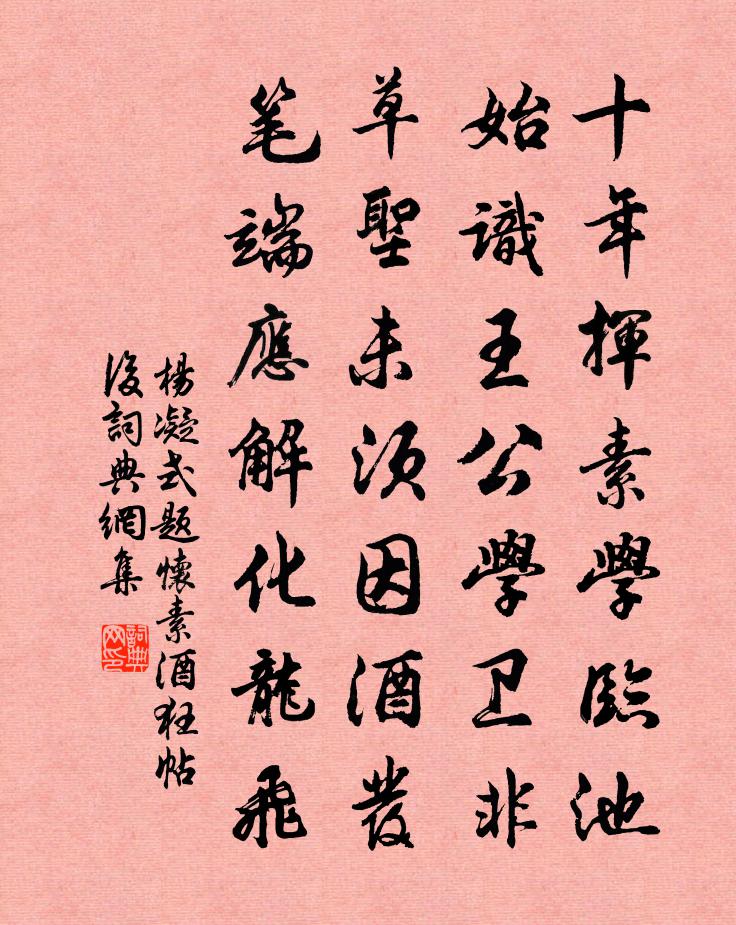 十年揮素學臨池
始識王公學卫非
草聖未須因酒發
笔端應解化龍飛
楊凝式题懷素酒狂帖
後詞典網集
詞典网印